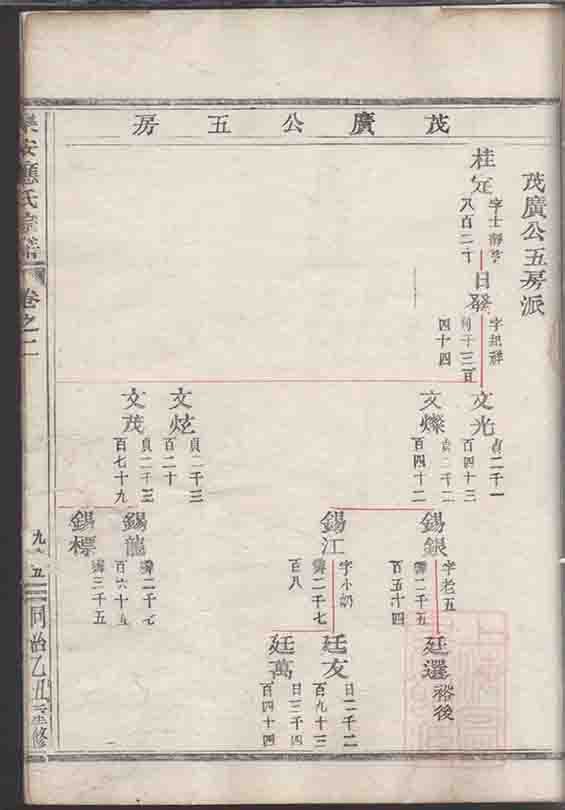 茂廣公五房
茂廣公五房派
桂
字士
八百二十
日發
利千三百
四十四
文光
貞二千一
百四十三
文燦
貞二千二
百四十二
文炫
貞二千三
百二十
文茂
貞二千三
百七十九
錫銀
字老五
二千五
百五十四
錫江
字小奶
二千七
百八
錫龍
二千七
百六十五
錫標
三千五
廷選
裕後
廷友
日二千二
百九十三
廷萬
日三千四
百四十四
樂安應氏宗譜
卷之二
九十五
同治乙丑重修